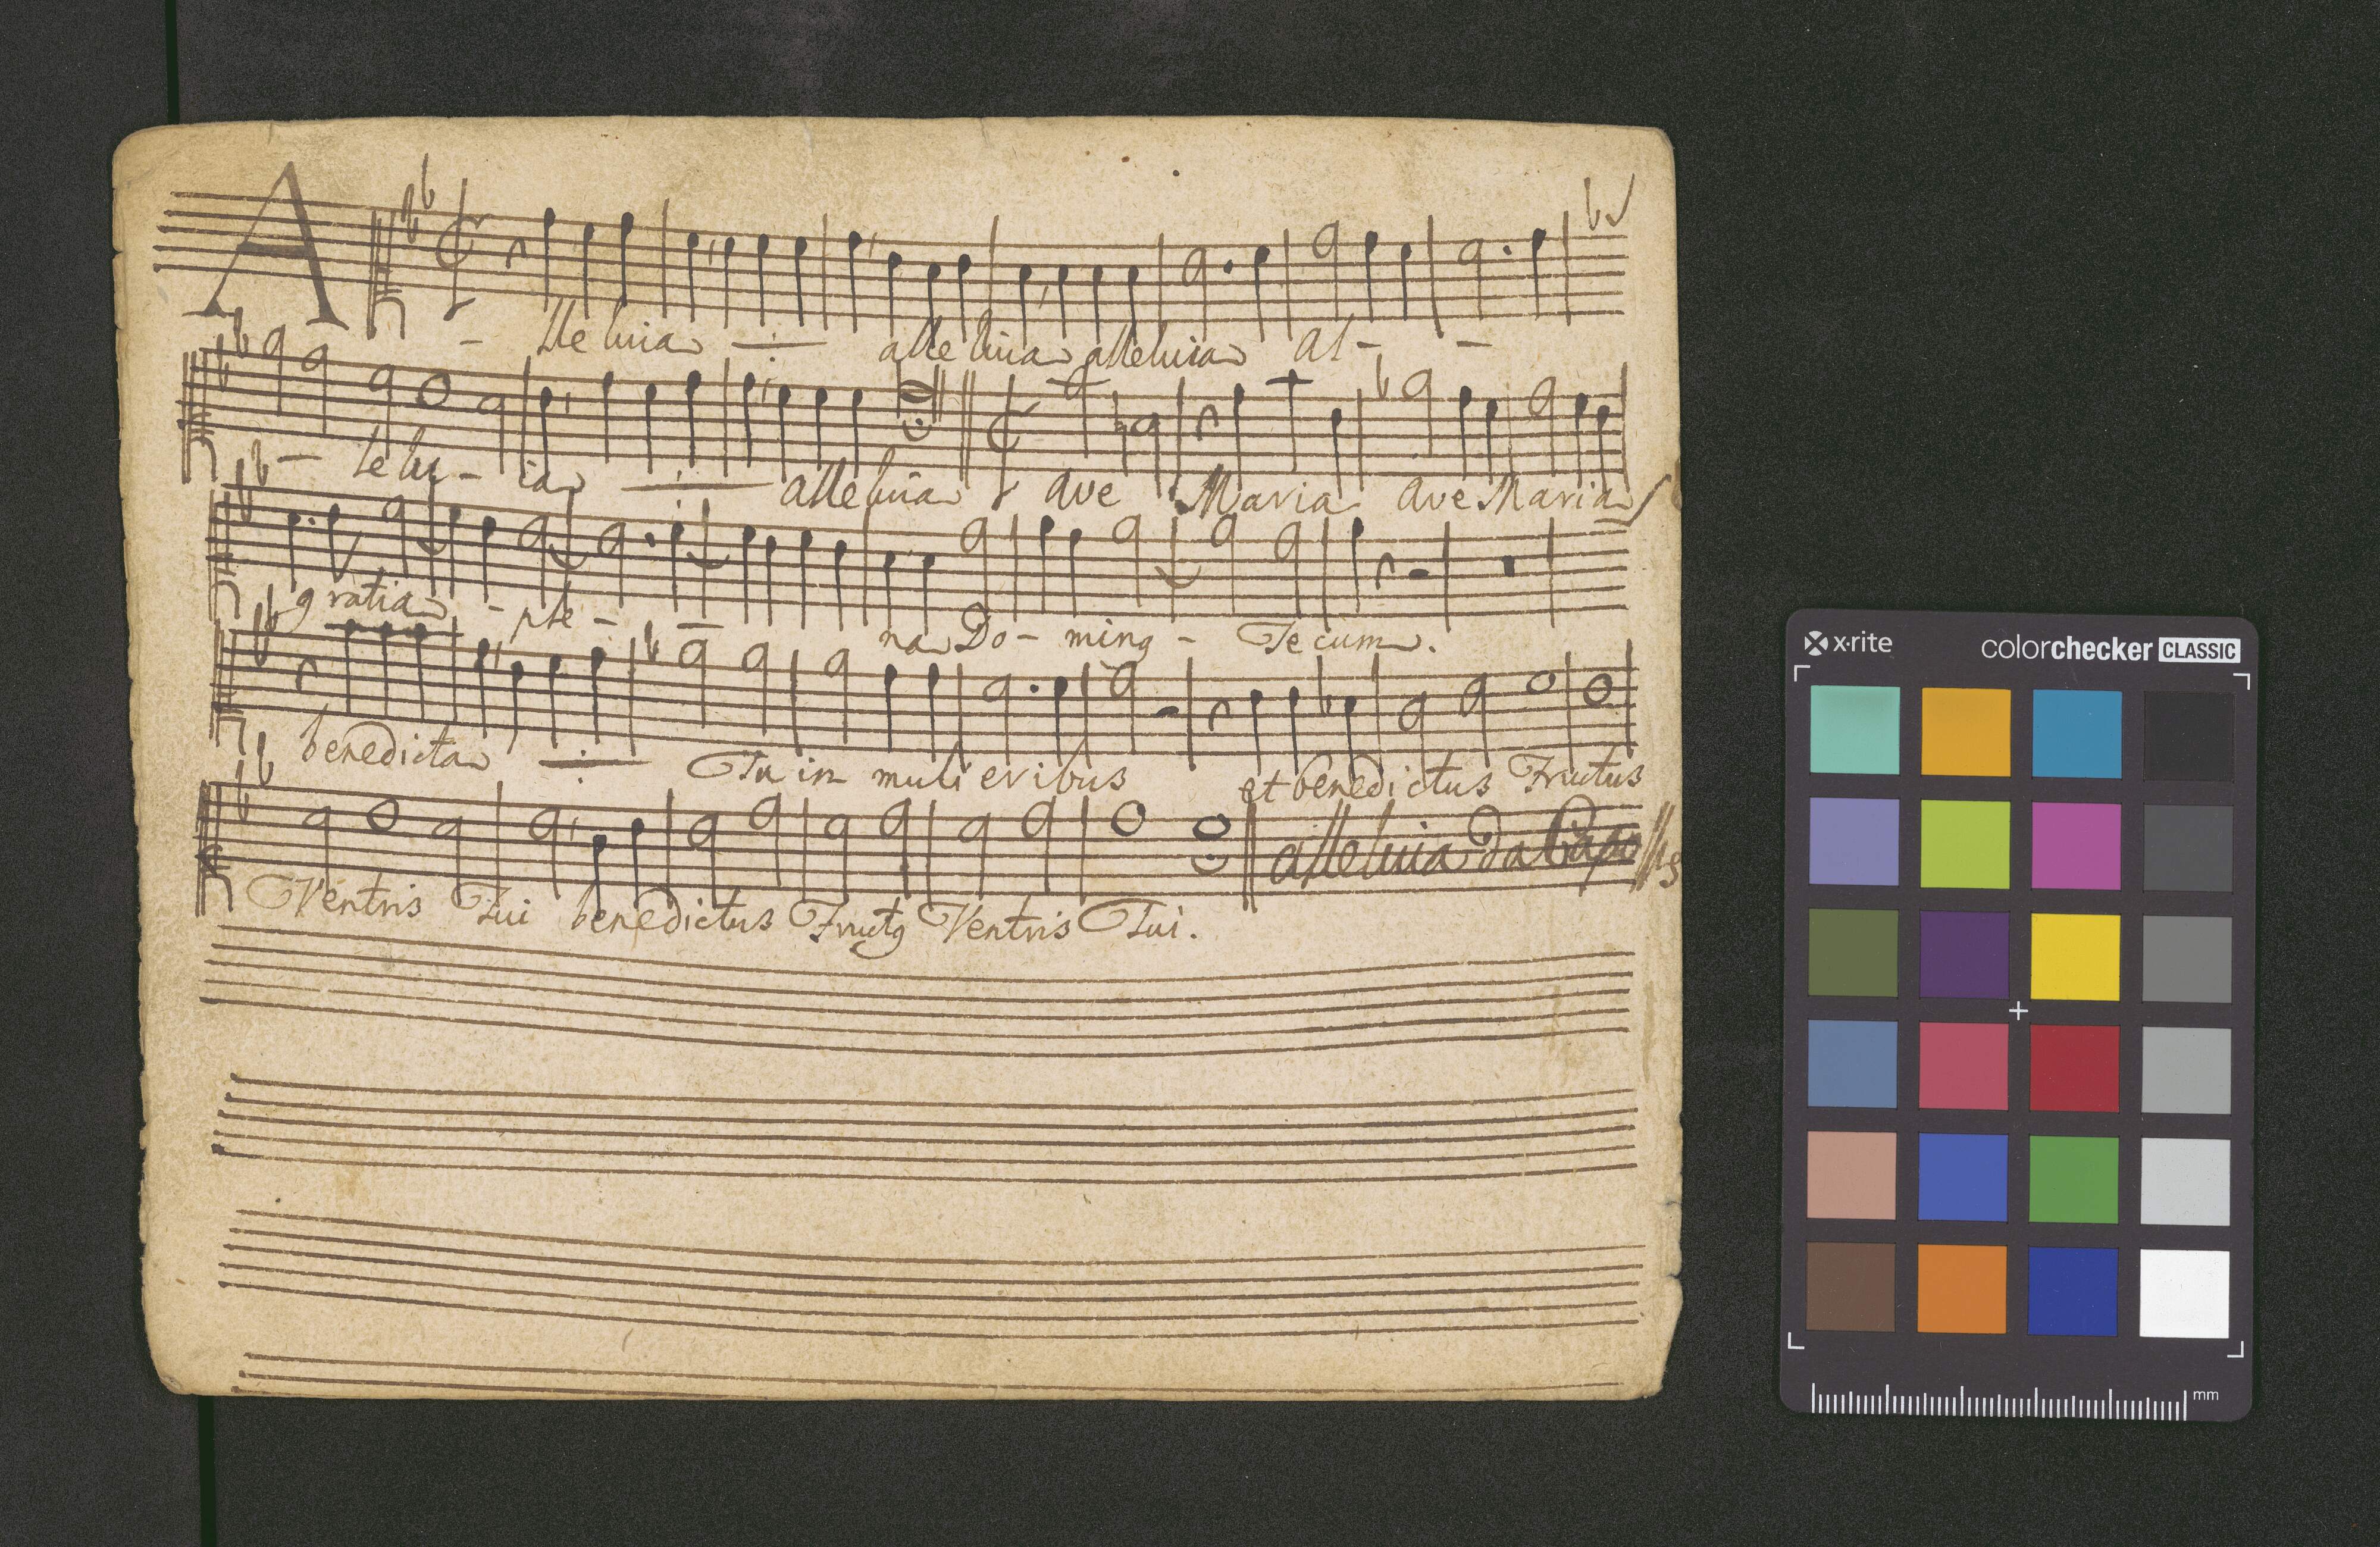 A - lleluia alleluia alleluia Al - -
- lelu - ia alleluia Ave Maria Ave Maria
gratia - ple - - na Do - ming - Tecum.
benedicta Tu in mulieribus et benedictus Fructus
Ventris Tui benedictus Fructg Ventris Tui.
alleluia Da Capo
x·rite
colorchecker CLASSIC
mm